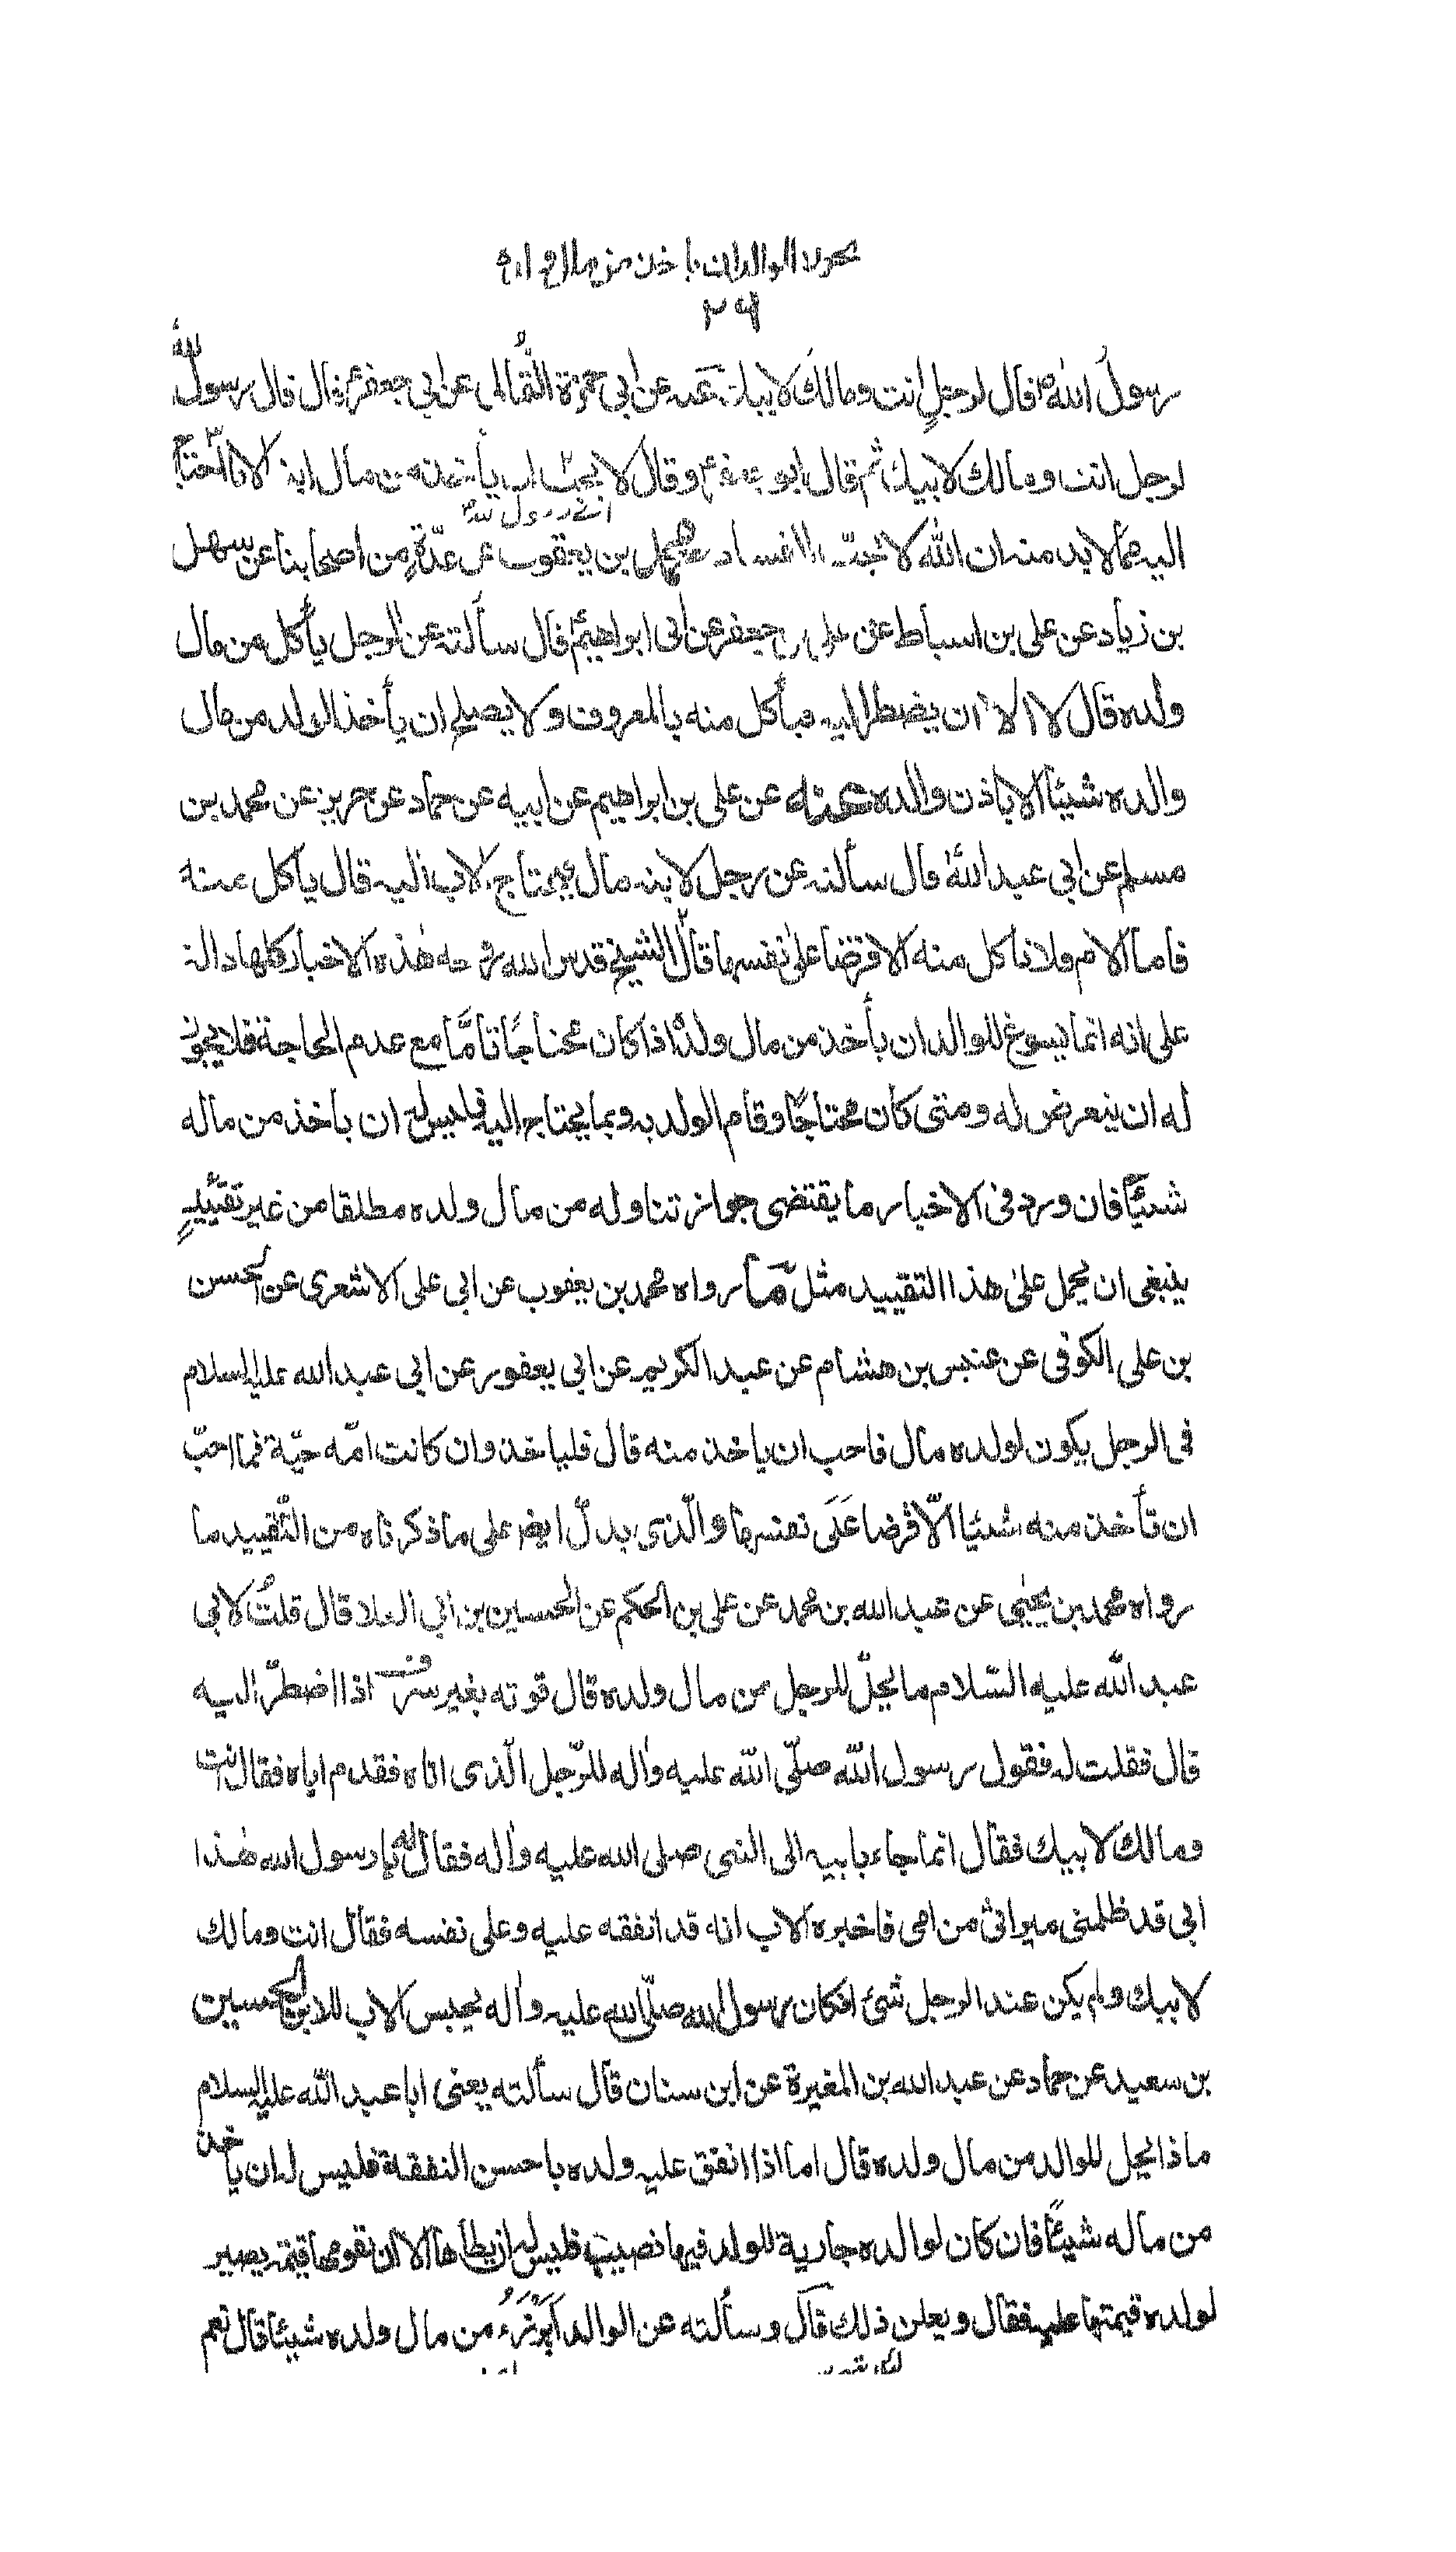 يجوز للوالدان ياخذ من مال
٢٩
رسول الله ص قال لرجل انت ومالك لابيك عنه عن ابي حمزة الثمالي عن ابي جعفر ع قال قال رسول الله
لرجل انت ومالك لابيك ثم قال ابو جعفر ع وقال لا يحب ان يأخذ من مال ابنه الا ما احتاج
اليه مما لابد منه ان الله لا يحبّ الفساد محمد بن يعقوب عن عدّة من اصحابنا عن سهل
بن زياد عن علي بن اسباط عن علي بن جعفر عن ابي ابراهيم ع قال سألته عن الرجل يأكل من مال
ولده قال لا الا ان يضطر اليه فيأكل منه بالمعروف ولا يصلح ان يأخذ الولد من مال
والده شيئا الا باذن والده عنه عن علي بن ابراهيم عن ابيه عن حماد عن حريز عن محمد بن
مسلم عن ابي عبد الله ع قال سألته عن رجل لابنه مال فيحتاج الاب اليه قال يأكل منه
فاما الام فلا تأكل منه الا قرضا على نفسها قال الشيخ قدس الله روحه هذه الاخبار كلها دالة
على انه انما يسوغ للوالد ان يأخذ من مال ولده اذا كان محتاجًا تامّا مع عدم الحاجة فلا يجوز
له ان يتعرض له ومتى كان محتاجًا وقام الولد به وبما يحتاج اليه فليس له ان ياخذ من ماله
شيئًا فان ورد في الاخبار ما يقتضى جواز تناوله من مال ولده مطلقا من غير تقييد
ينبغي ان يحمل على هذا التقييد مثل ما رواه محمد بن يعقوب عن ابي علي الاشعري عن الحسن
بن علي الكوفي عن عبيس بن هشام عن عبد الكريم عن ابي يعفور عن ابي عبد الله عليه السلام
في الرجل يكون لولده مال فاحب ان ياخذ منه قال فلياخذ وان كانت امّه حيّة فما احبّ
ان تأخذ منه شيئا الّا قرضا عَلَى نفسها والّذى يدلّ ايضا على ما ذكرناه من التّقييد ما
رواه محمد بن يحيى عن عبد الله بن محمد عن علي بن الحكم عن الحسين بن ابي العلا قال قلتُ لابي
عبد الله عليه السّلام ما يحلّ للرجل من مال ولده قال قوته بغير سرف اذا اضطرّ اليه
قال فقلت له فقول رسول الله صلّى الله عليه واله للرّجل الّذى اتاه فقدم اباه فقال انت
ومالك لابيك فقال انما جاء بابيه الى النبي صلى الله عليه واله فقال له يا رسول الله هذا
ابي قد ظلمني ميراثي من امي فاخبره الاب انه قد انفقه عليه وعلى نفسه فقال انت ومالك
لابيك ولم يكن عند الرجل شئ افكان رسول الله صلّى الله عليه واله يحبس الاب للابن الحسين
بن سعيد عن حماد عن عبد الله بن المغيرة عن ابن سنان قال سألته يعنى ابا عبد الله عليه السلام
ماذا يحل للوالد من مال ولده قال اما اذا انفق عليه ولده باحسن النفقة فليس له ان ياخذ
من ماله شيئًا فان كان لوالده جارية للولد فيها نصيب فليس له ان يطأها الا ان يقومها قيمة يصير
لولده قيمتها عليه فقال ويعلن ذلك قال وسألته عن الوالد أيرزء من مال ولده شيئا قال نعم